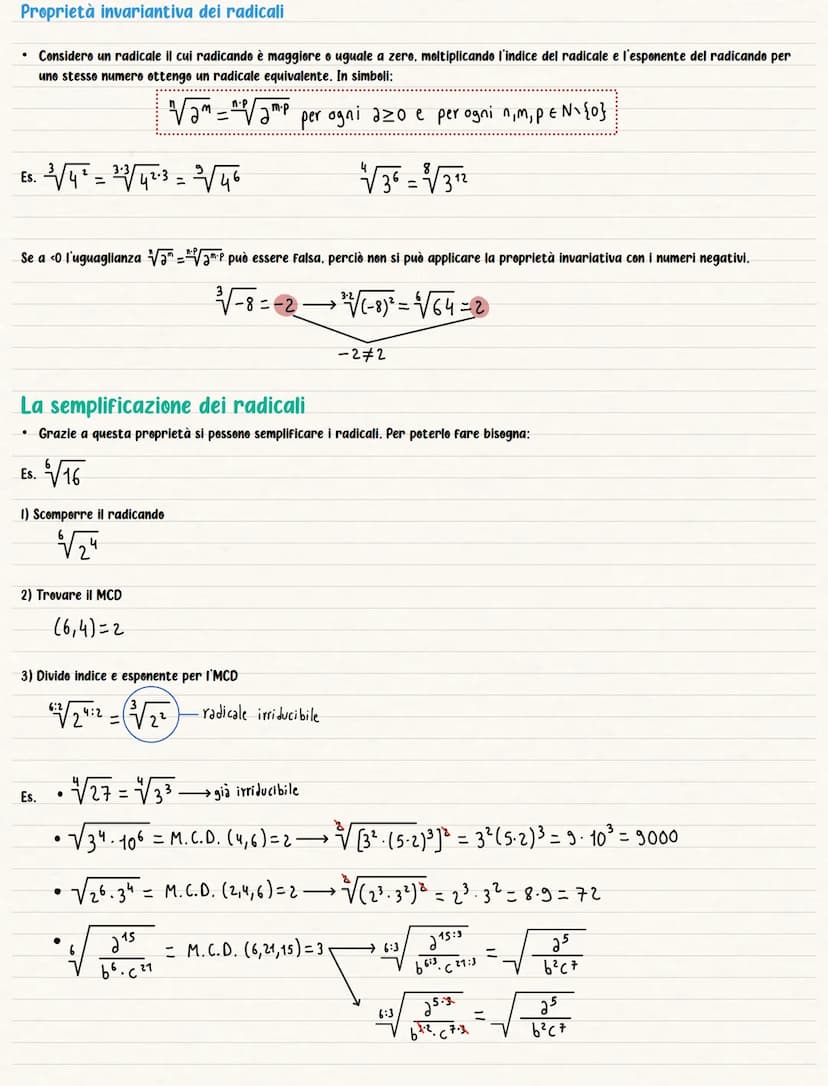 Proprietà invariantiva dei radicali
• Considero un radicale il cui radicando è maggiore o uguale a zero, moltiplicando l'indice del radicale e l'esponente del radicando per
uno stesso numero ottengo un radicale equivalente. In simboli:
ⁿ√aᵐ = ⁿ·ᵖ√aᵐ·ᵖ per ogni a≥0 e per ogni n,m,p ∈ N\{0}
Es. ³√4² = ³·³√4²·³ = ⁹√4⁶ ⁴√3⁶ = ⁸√3¹²
Se a <0 l'uguaglianza ⁿ√aᵐ = ⁿ·ᵖ√aᵐ·ᵖ può essere falsa, perciò non si può applicare la proprietà invariativa con i numeri negativi.
³√-8 = -2 → ³·²√(-8)² = ⁶√64 = 2
-2≠2
La semplificazione dei radicali
• Grazie a questa proprietà si possono semplificare i radicali. Per poterlo fare bisogna:
Es. ⁶√16
1) Scomporre il radicando
⁶√2⁴
2) Trovare il MCD
(6,4)=2
3) Divido indice e esponente per l'MCD
⁶:²√2⁴:² = ³√2² — radicale irriducibile
Es. • ⁴√27 = ⁴√3³ → già irriducibile
• √3⁴·10⁶ = M.C.D. (4,6)=2 → ²√[3²·(5·2)³]² = 3²(5·2)³ = 9·10³ = 9000
• √2⁶·3⁴ = M.C.D. (2,4,6)=2 → ²√(2³·3²)² = 2³·3² = 8·9 = 72
• ⁶√a¹⁵/b⁶·c²¹ = M.C.D. (6,21,15)=3 → ⁶:³√a¹⁵:³/b⁶:³·c²¹:³ = √a⁵/b²c⁷
⁶:³√a⁵·³/b³·²·c⁷·³ = √a⁵/b²c⁷